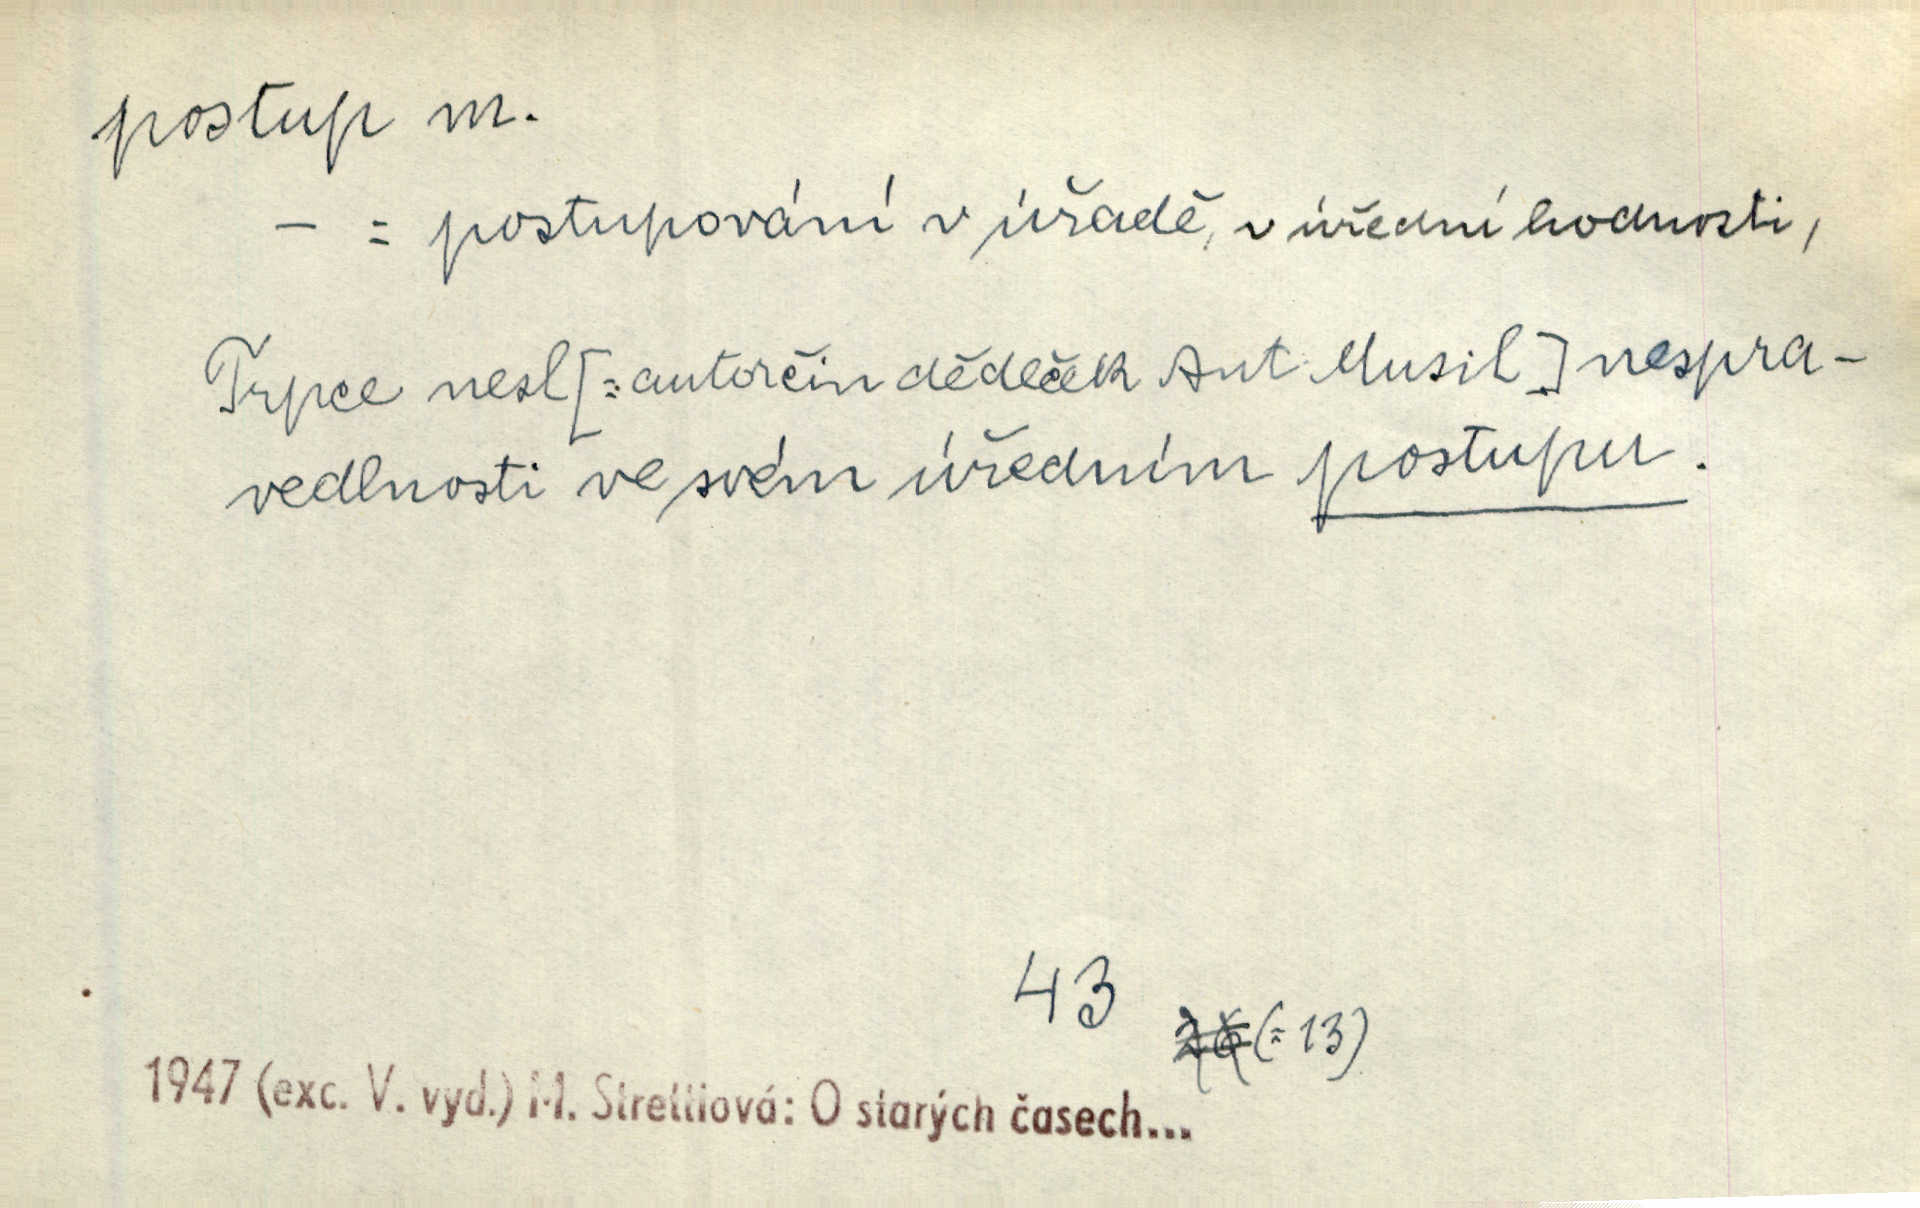 postup m.
– = postupování v úřadě, v úřední hodnosti,
Trpce nesl [= autorčin dědeček Ant. Musil] nespra-
vedlnosti ve svém úředním postupu.
43
(= 13)
1947 (exc. V. vyd.) M. Strettiová: O starých časech...